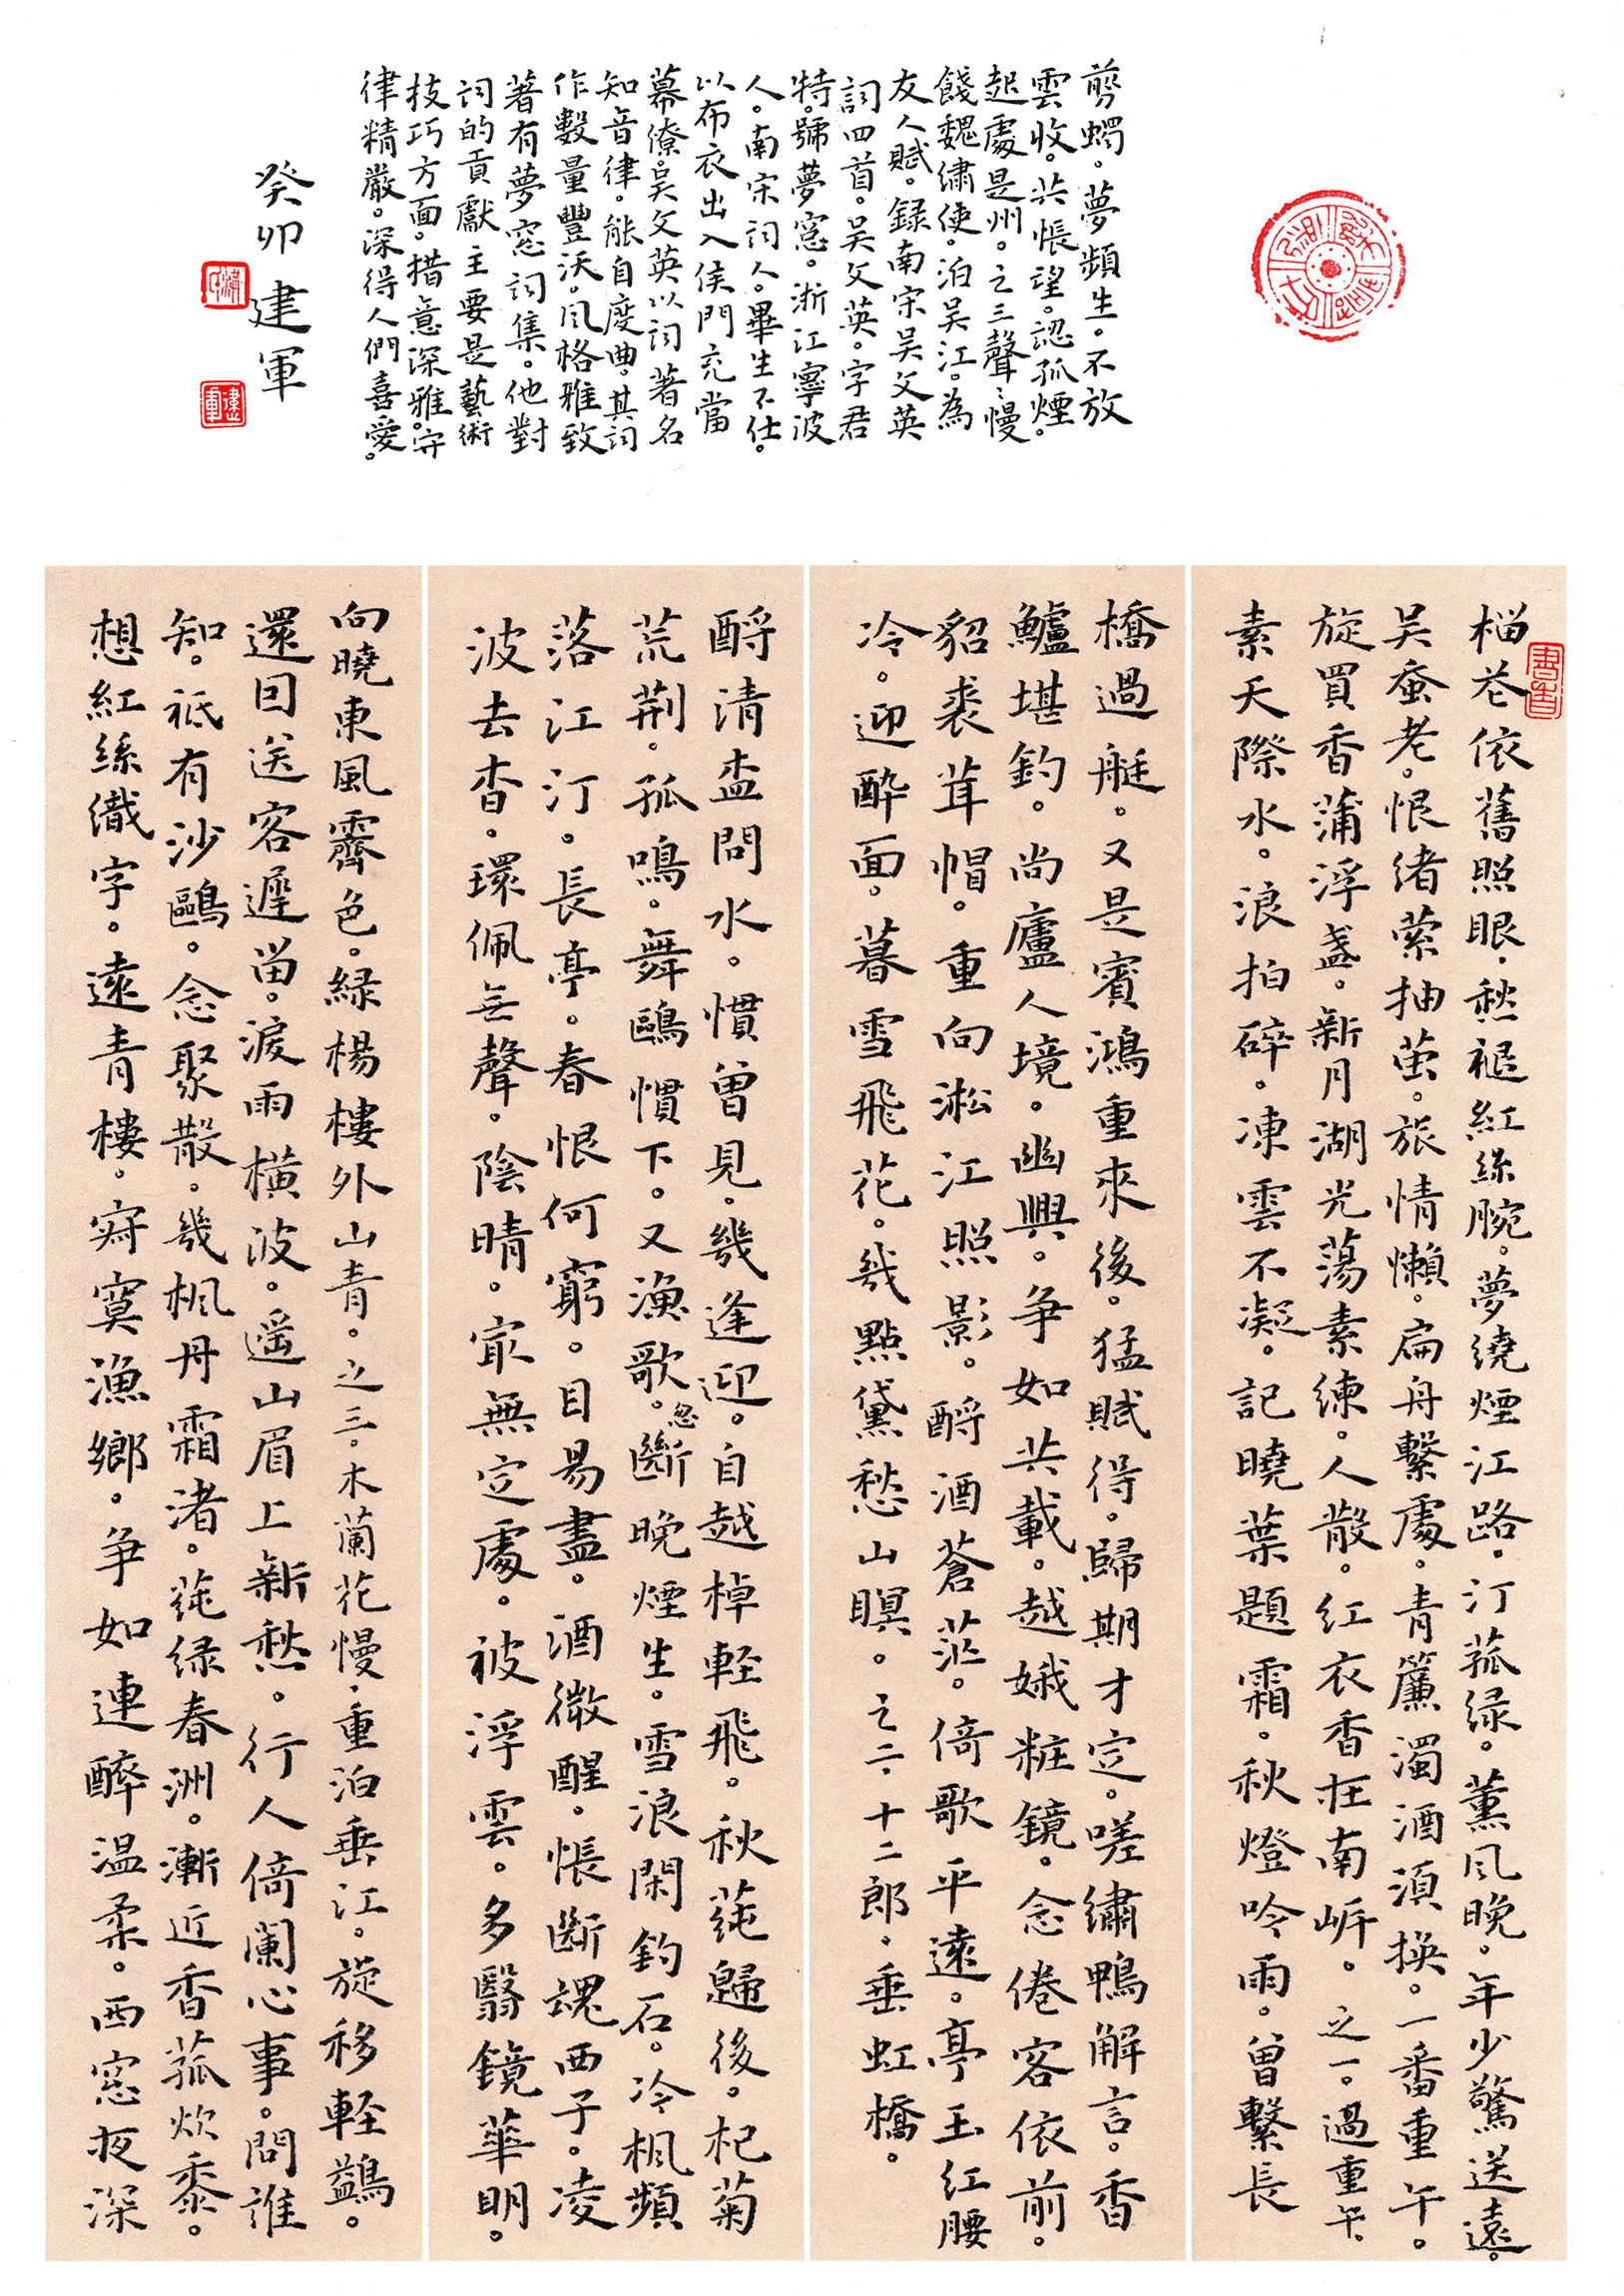 榴花依舊照眼.愁褪紅絲腕。夢繞煙江路.汀菰绿。薰风晚。年少驚送遠。
吴蚕老。恨绪萦抽茧。旅情懶。扁舟繫處。青簾濁酒須换。一番重午。
旋買香蒲浮盞。新月湖光蕩素練。人散。红衣香在南岍。之一。過重午。
素天際水。浪拍碎。凍雲不凝。記曉葉題霜。秋燈吟雨。曾繫長
橋過艇。又是賓鴻重來後。猛賦得。歸期才定。嗟繡鴨解言。香
鱸堪釣。尚廬人境。幽興。争如共載。越娥粧鏡。念倦客依前。
貂裘茸帽。重向淞江照影。酹酒蒼茫。倚歌平遠。亭玉红腰
冷。迎酔面。暮雪飛花。幾點黛愁山暝。之二.十二郎.垂虹橋。
酹清盃問水。慣曾見。幾逢迎。自越棹軽飛。秋蓴歸後。杞菊
荒荆。孤鳴。舞鷗慣下。又漁歌。忽斷晚煙生。雪浪閑釣石。冷楓頻
落江汀。長亭。春恨何窮。目易盡。酒微醒。悵断魂西子。凌
波去杳。環佩無聲。陰晴。最無定處。被浮雲。多翳鏡華明。
向曉東風霽色。緑楊樓外山青。之三。木蘭花慢.重泊垂江。旋移軽鷁。
還回送客遲留。淚雨橫波。遥山眉上新愁。行人倚闌心事。問誰
知。祇有沙鷗。念聚散。幾楓丹霜渚。蓴绿春洲。漸近香菰炊黍。
想紅絲織字。遠青樓。寂寞漁鄉。争如連醉温柔。西窓夜深
剪蠋。夢頻生。不放
雲收。共悵望。認孤煙。
起處是州。之三聲聲慢
餞魏繡使。泊吴江。為
友人賦。録南宋吴文英
詞四首。吴文英。字君
特。號夢窓。浙江寧波
人。南宋詞人。畢生不仕。
以布衣出入侯門充當
幕僚。吴文英以詞著名
知音律。能自度曲。其詞
作數量豐沃。风格雅致
著有夢窓詞集。他對
詞的貢獻主要是藝術
技巧方面。措意深雅。守
律精嚴。深得人們喜愛。
癸卯建軍
建軍
書香